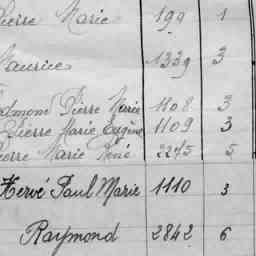 Pierre Marie 199 1
Maurice 1339 3
Edmond Pierre Marie 1108 3
Pierre Marie Eugène 1109 3
Pierre Marie René 2275 5
Hervé Paul Marie 1110 3
Raymond 2842 6